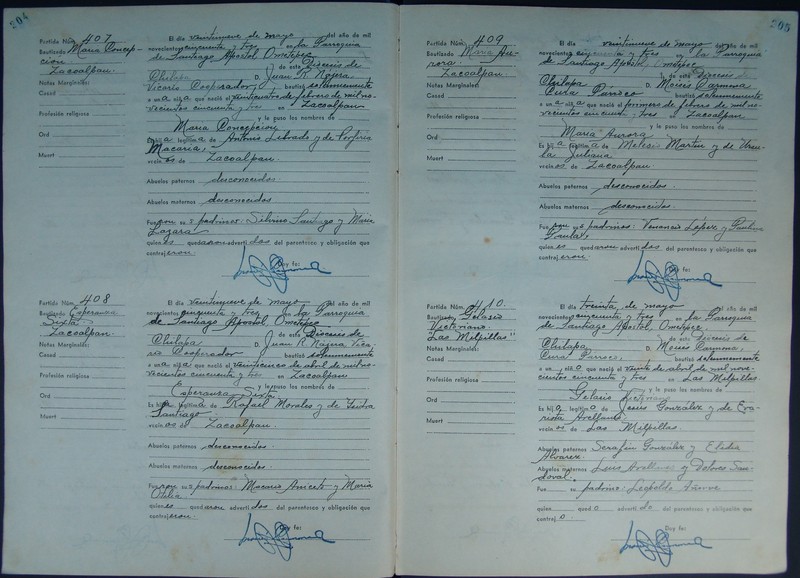 204
Partida Núm. 407
Bautizado María Concepción
Zacoalpan.
Notas Marginales:
Casad
Profesión religiosa
Ord
Muert
El día veintinueve de mayo del año de mil
novecientos cincuenta y tres en la Parroquia
de Santiago Apóstol Ometepec
de este Diócesis de
Chilapa D. Juan R. Nájera
Vicario Cooperador bautizó solemnemente
a una niña que nació el veinticuatro de febrero de mil no-
vecientos cincuenta y tres en Zacoalpan
y le puso los nombres de
María Concepción
Es hija legítima de Antonio Librado y de Porfiria
Macaria
vecinos de Zacoalpan.
Abuelos paternos desconocidos
Abuelos maternos desconocidos
Fueron su s padrinos: Silvino Santiago y María
Lázara
quienes quedaron advertidos del parentesco y obligación que
contrajeron.
Doy fe:
Partida Núm. 408
Bautizado Esperanza
Sixta
Zacoalpan.
Notas Marginales:
Casad
Profesión religiosa
Ord
Muert
El día veintinueve de mayo del año de mil
novecientos cincuenta y tres en la Parroquia
de Santiago Apóstol Ometepec
de este Diócesis de
Chilapa D. Juan R. Nájera Vica-
rio Cooperador bautizó solemnemente
a una niña que nació el veinticinco de abril de mil no-
vecientos cincuenta y tres en Zacoalpan
y le puso los nombres de
Esperanza Sixta
Es hija legítima de Rafael Morales y de Isidra
Santiago
vecinos de Zacoalpan.
Abuelos paternos desconocidos
Abuelos maternos desconocidos.
Fueron su s padrinos: Macario Aniceto y María
Otilia
quienes quedaron advertidos del parentesco y obligación que
contrajeron.
Doy fe:
205
Partida Núm. 409
Bautizado María Au-
rora.
Zacoalpan
Notas Marginales:
Casad
Profesión religiosa
Ord
Muert
El día veintinueve de mayo del año de mil
novecientos cincuenta y tres en la Parroquia
de Santiago Apóstol Ometepec
de este Diócesis de
Chilapa D. Moisés Carmona
Cura Párroco bautizó solemnemente
a una niña que nació el primero de febrero de mil no-
vecientos cincuenta y tres en Zacoalpan
y le puso los nombres de
María Aurora
Es hija legítima de Melesio Martín y de Ursu-
la Juliana
vecinos de Zacoalpan.
Abuelos paternos desconocidos.
Abuelos maternos desconocidos.
Fueron su s padrinos: Venancio López y Paulina
quienes quedaron advertidos del parentesco y obligación que
contrajeron.
Doy fe:
Partida Núm. 410.
Bautizado Gelasio
Victoriano
Las Milpillas"
Notas Marginales:
Casad
Profesión religiosa
Ord
Muert
El día treinta de mayo del año de mil
novecientos cincuenta y tres en la Parroquia
de Santiago Apóstol, Ometepec.
de este Diócesis de
Chilapa D. Moisés Carmona,
Cura Párroco bautizó solemnemente
a un niño que nació el veinte de abril de mil nove-
cientos cincuenta y tres en Las Milpillas
y le puso los nombres de
Gelasio Victoriano
Es hijo legítimo de Jesús González y de Eva-
rista Avellaneda
vecinos de Las Milpillas.
Abuelos paternos Serafín González y Eladia
Álvarez.
Abuelos maternos Luis y Dolores San-
doval.
Fue su padrino: Leopoldo
quien quedó advertido del parentesco y obligación que
contrajo.
Doy fe: